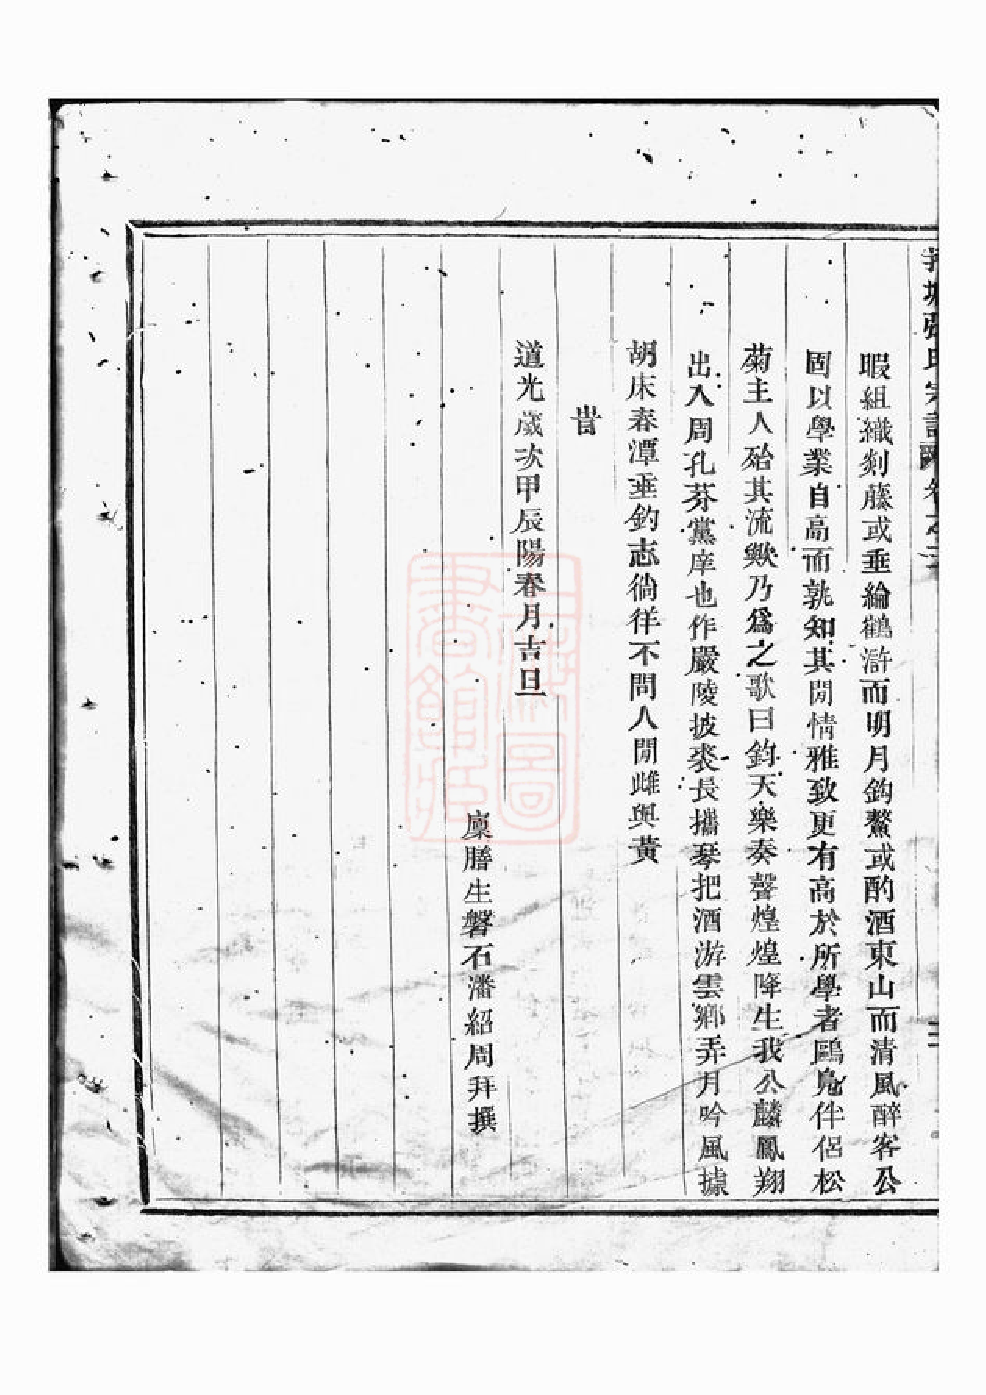 張氏宗譜 卷之二
暇組織剡藤或垂綸鶴滸而明月鈎鰲或酌酒東山而清風醉客公
固以學業自高而孰知其閒情雅致更有高於所學者鷗鳧伴侶松
菊主人殆其流歟乃爲之歌曰鈞天樂奏聲煌煌降生我公麟鳳翔
出入周孔芬黨庠也作嚴陵披裘長攜琴把酒游雲鄉弄月吟風據
胡床春潭垂釣志徜徉不問人間雌與黃
旹
道光歲次甲辰陽春月吉旦
廩膳生磐石潘紹周拜撰
上海圖書館藏